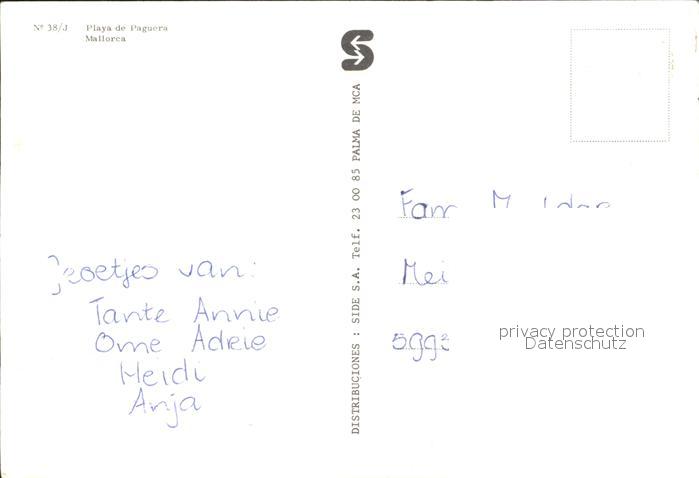 Nº 38/J Playa de Paguera
Mallorca
DISTRIBUCIONES : SIDE S.A. Telf. 23 00 85 PALMA DE MCA
Groetjes van:
Tante Annie
Ome Adrie
Heidi
Anja
Fam
Mei
privacy protection
Datenschutz